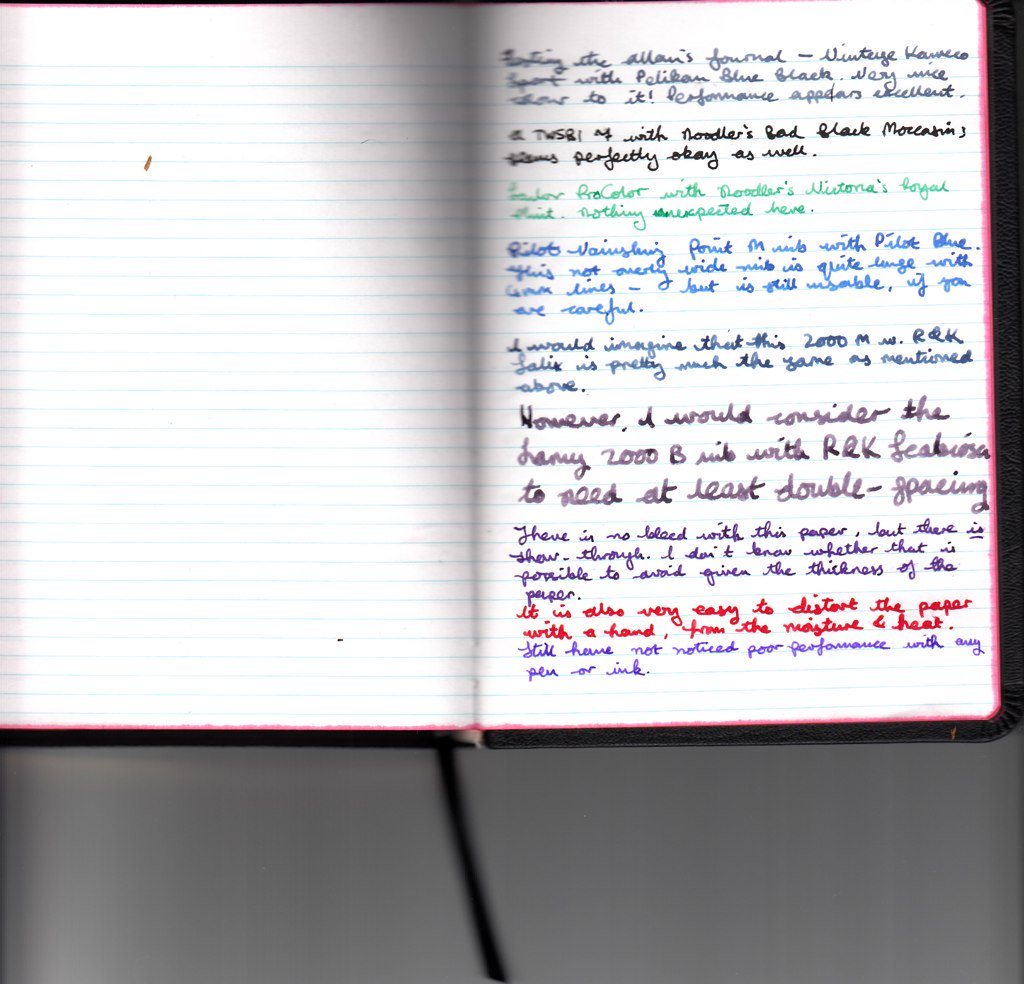 Testing the allan's journal — Vintage Kaweco
Sport with Pelikan Blue Black. Very nice
colour to it! Performance appears excellent.
a TWSBI M with Noodler's Bad Black Moccasin;
seems perfectly okay as well.
Sailor ProColor with Noodler's Victoria's Royal
Mint. Nothing unexpected here.
Pilot Vanishing Point M nib with Pilot Blue.
This not overly wide nib is quite large with
6mm lines — but is still usable, if you
are careful.
I would imagine that this 2000 M w. R&K
Salix is pretty much the same as mentioned
above.
However, I would consider the
Lamy 2000 B nib with R&K Scabiosa
to need at least double-spacing
There is no bleed with this paper, but there is
show-through. I don't know whether that is
possible to avoid given the thickness of the
paper.
It is also very easy to distort the paper
with a hand, from the moisture & heat.
Still have not noticed poor performance with any
pen or ink.